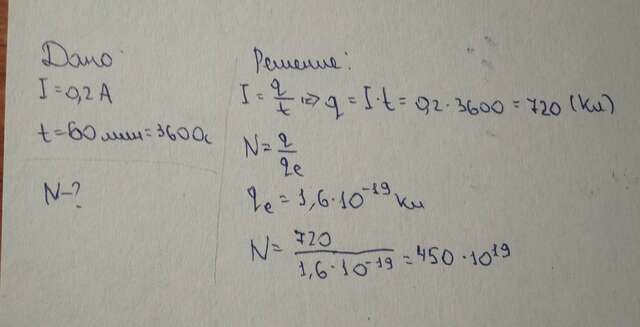 Дано:
I = 0,2 А
t = 60 мин = 3600с
N - ?
Решение:
I = q/t => q = I·t = 0,2 · 3600 = 720 (Кл)
N = q/qe
qe = 1,6 · 10⁻¹⁹ Кл
N = 720/(1,6 · 10⁻¹⁹) = 450 · 10¹⁹